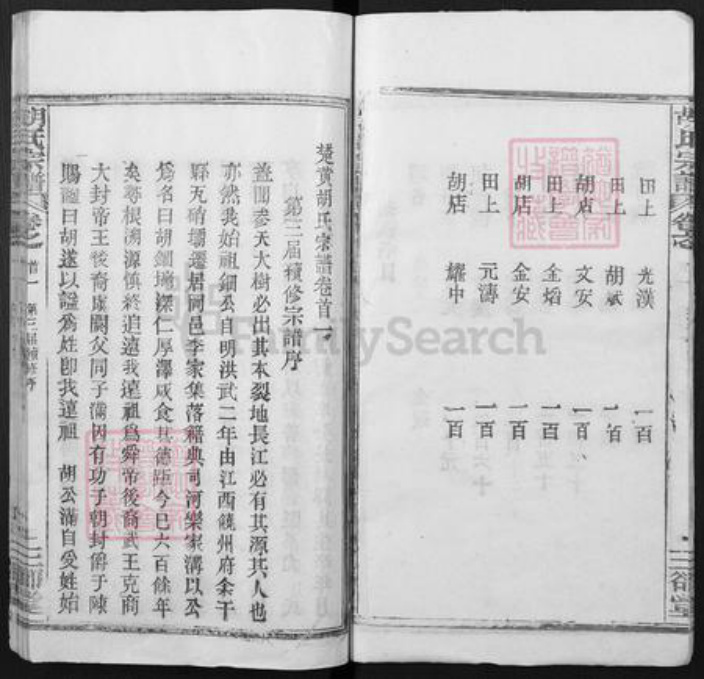 胡氏宗譜
田上 光漢 一百
田上 胡斌 一百
胡店 文安 一百
田上 金焰 一百
胡店 金安 一百
田上 元濤 一百
胡店 耀中 一百
楚黃胡氏宗譜卷首一
第三届續修宗譜序
蓋聞參天大樹必出其本裂地長江必有其源其人也
亦然我始祖細公自明洪武二年由江西饒州府余干
縣瓦硝壩遷居同邑李家集落籍典司河欒家溝以公
爲名曰胡細塆深仁厚澤咸食其德距今已六百餘年
矣尋根溯源慎終追遠我遠祖爲舜帝後裔武王克商
大封帝王後裔虞閼父同子滿因有功于朝封爵于陳
賜謚曰胡遂以謚爲姓卽我遠祖 胡公滿自受姓始
胡氏宗譜 卷之首一 第三届續修序
FamilySearch